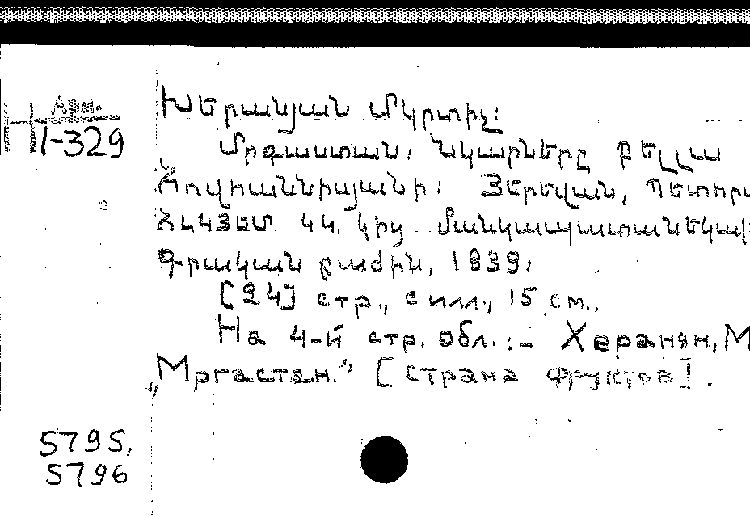 Арм.
Н 1-329
Խերանյան Մկրտիչ:
Մրգաստան: Նկարները բելլա
Հովհաննիսյանի: Յերեվան, Պետհրա
ՀԼԿՅԵՄ ԿԿ կից մանկապատանեկա
գրական բաժին, 1939:
[24] стр., с илл., 15 см.
На 4-й стр. обл.:- Херанян, М
„Мргастан.” [Страна фруктов].
5795,
5796